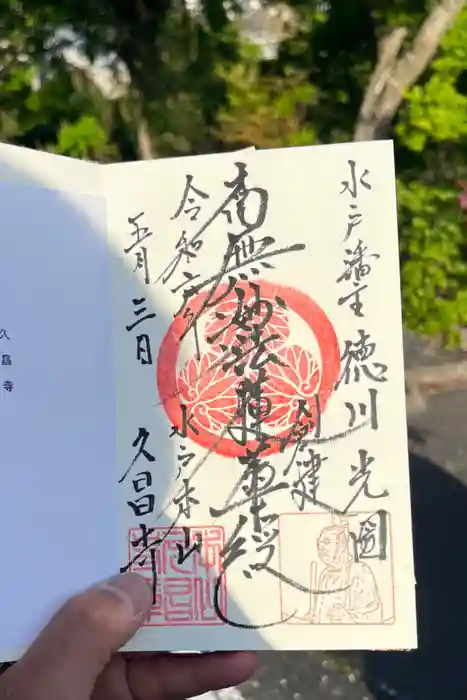 水戸藩主 徳川光圀
公創建
南無妙法蓮華経
水戸本山
令和六年
五月三日
久昌寺
久昌寺